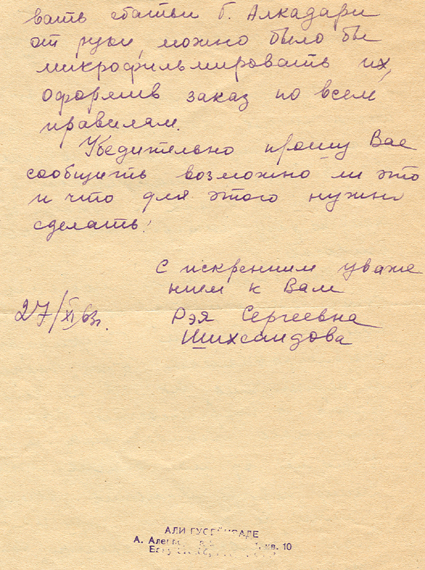 вать статьи Г. Алкадари
от руки, можно было бы
микрофильмировать их,
оформив заказ по всем
правилам.
Убедительно прошу Вас
сообщить возможно ли это
и что для этого нужно
сделать.
С искренним уваже
нием к Вам
27/XI 63г.
Рэя Сергеевна
Шихсаидова
АЛИ
А. кв. 10